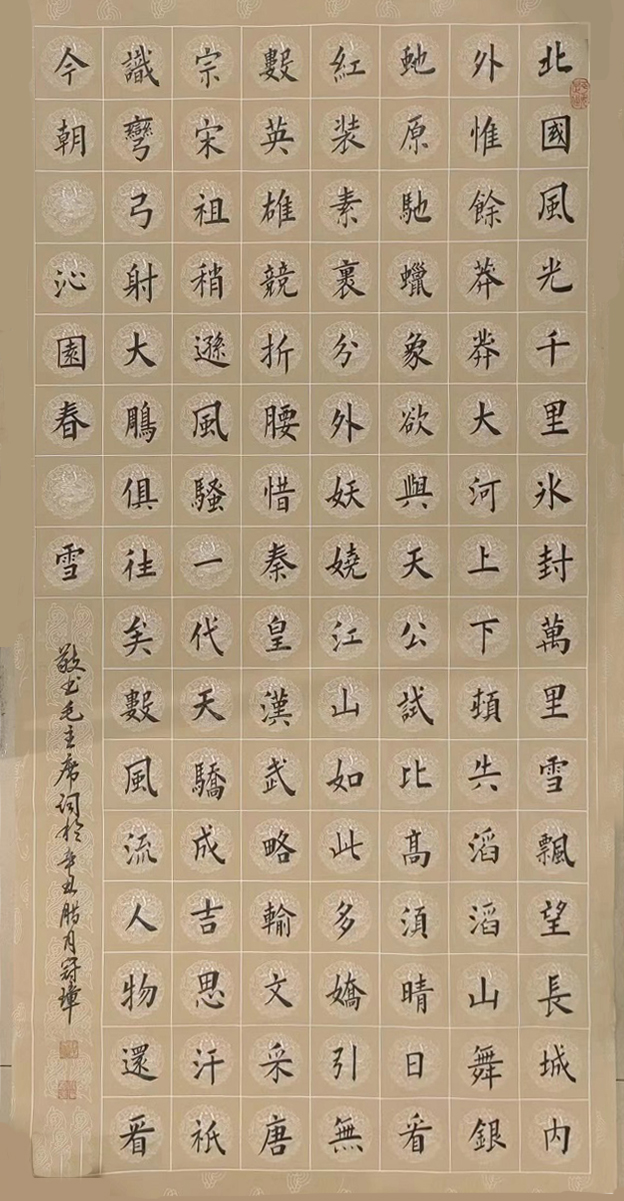 北國風光千里氷封萬里雪飄望長城内
外惟餘莽莽大河上下頓失滔滔山舞銀
虵原馳蠟象欲與天公試比髙須晴日看
紅装素裹分外妖嬈江山如此多嬌引無
數英雄競折腰惜秦皇漢武略輸文采唐
宗宋祖稍遜風騷一代天驕成吉思汗祇
識彎弓射大鵰俱往矣數風流人物還看
今朝 沁園春 雪
敬书毛主席词於辛丑腊月冠璋